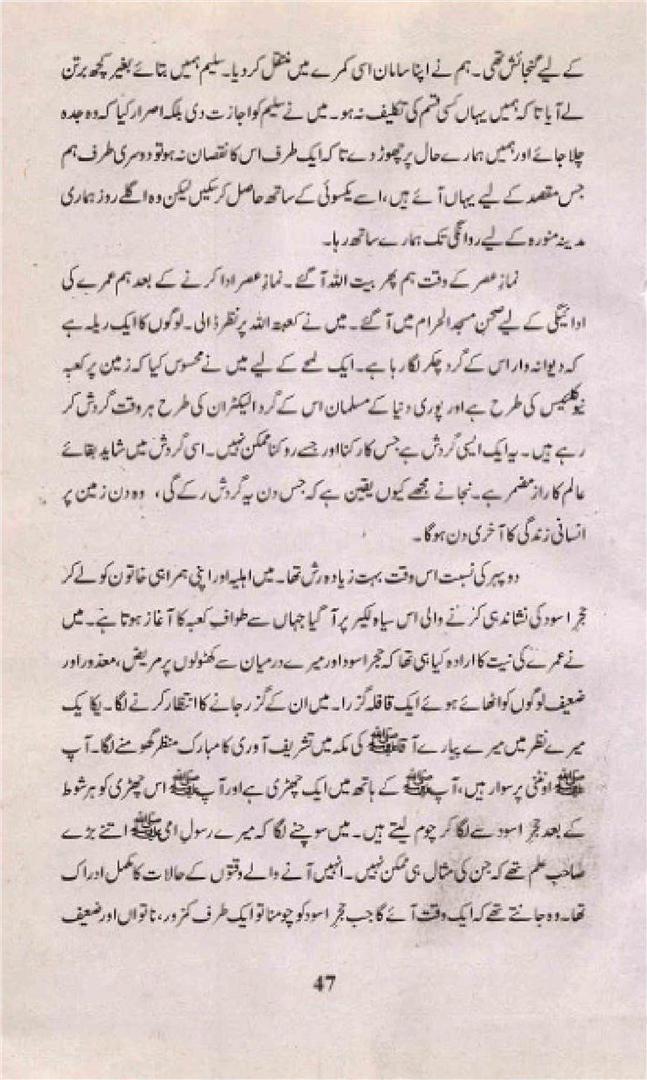 کے لیے گنجائش تھی۔ ہم نے اپنا سامان اسی کمرے میں منتقل کر دیا۔ سلیم ہمیں بتائے بغیر کچھ برتن
لے آیا تا کہ ہمیں یہاں کسی قسم کی تکلیف نہ ہو۔ میں نے سلیم کو اجازت دی بلکہ اصرار کیا کہ وہ جدہ
چلا جائے اور ہمیں ہمارے حال پر چھوڑ دے تا کہ ایک طرف اس کا نقصان نہ ہو تو دوسری طرف ہم
جس مقصد کے لیے یہاں آئے ہیں، اسے یکسوئی کے ساتھ حاصل کر سکیں لیکن وہ اگلے روز ہماری
مدینہ منورہ کے لیے روانگی تک ہمارے ساتھ رہا۔
نماز عصر کے وقت ہم پھر بیت اللہ آ گئے۔ نماز عصر ادا کرنے کے بعد ہم عمرے کی
ادائیگی کے لیے صحن مسجد الحرام میں آ گئے۔ میں نے کعبتہ اللہ پر نظر ڈالی۔ لوگوں کا ایک ریلہ ہے
کہ دیوانہ وار اس کے گرد چکر لگا رہا ہے۔ ایک لمحے کے لیے میں نے محسوس کیا کہ زمین پر کعبہ
نیوکلئیس کی طرح ہے اور پوری دنیا کے مسلمان اس کے گرد الیکٹران کی طرح ہر وقت گردش کر
رہے ہیں۔ یہ ایک ایسی گردش ہے جس کا رکنا اور جسے روکنا ممکن نہیں۔ اسی گردش میں شاید بقائے
عالم کا راز مضمر ہے۔ نجانے مجھے کیوں یقین ہے کہ جس دن یہ گردش رکے گی، وہ دن زمین پر
انسانی زندگی کا آخری دن ہوگا۔
دوپہر کی نسبت اس وقت بہت زیادہ رش تھا۔ میں اہلیہ اور اپنی ہمراہی خاتون کو لے کر
حجرِ اسود کی نشاندہی کرنے والی اس سیاہ لکیر پر آ گیا جہاں سے طوافِ کعبہ کا آغاز ہوتا ہے۔ میں
نے عمرے کی نیت کا ارادہ کیا ہی تھا کہ حجرِ اسود اور میرے درمیان سے کھٹولوں پر مریض، معذور اور
ضعیف لوگوں کو اٹھائے ہوئے ایک قافلہ گزرا۔ میں ان کے گزر جانے کا انتظار کرنے لگا۔ یکا یک
میرے نظر میں میرے پیارے آقا ﷺ کی مکہ میں تشریف آوری کا مبارک منظر گھومنے لگا۔ آپ
ﷺ اونٹنی پر سوار ہیں، آپ ﷺ کے ہاتھ میں ایک چھڑی ہے اور آپ ﷺ اس چھڑی کو ہر شوط
کے بعد حجرِ اسود سے لگا کر چوم لیتے ہیں۔ میں سوچنے لگا کہ میرے رسولِ امی ﷺ اتنے بڑے
صاحبِ علم تھے کہ جن کی مثال ہی ممکن نہیں۔ انہیں آنے والے وقتوں کے حالات کا مکمل ادراک
تھا۔ وہ جانتے تھے کہ ایک وقت آئے گا جب حجرِ اسود کو چومنا تو ایک طرف کمزور، ناتواں اور ضعیف
47